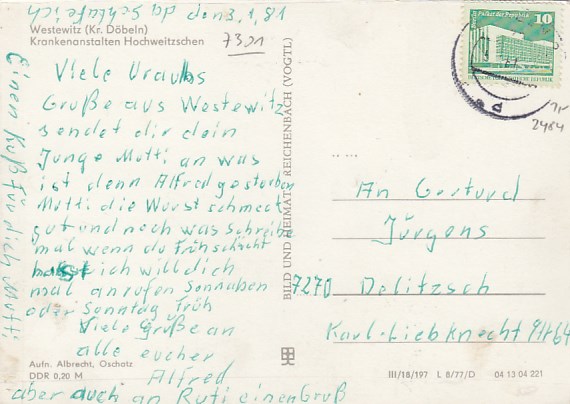 da schlafe ich
den 3.1.81
Westewitz (Kr. Döbeln)
Krankenanstalten Hochweitzschen
7301
Viele Uraubs
Große aus Westewitz
sendet dir dein
Junge Mutti an was
ist denn Alfred gestorben
Mutti die Wurst schmeckt
gut und noch was Schreibe
mal wenn du Frühschicht
hast ich will dich
mal anrufen Sonnaben
oder Sonntag früh
Viele Große an
alle eucher
Alfred
aber auch an Ruti einen Gruß
Einen Kuß für dich Mutti
Aufn. Albrecht, Oschatz
DDR 0,20 M
BILD UND HEIMAT REICHENBACH (VOGTL)
Palast der Republik
10
DEUTSCHE DEMOKRATISCHE REPUBLIK
2484
An Gertrud
Jürgens
7270 Delitzsch
Karl-Liebknecht Str 64
III/18/197 L 8/77/D 04 13 04 221